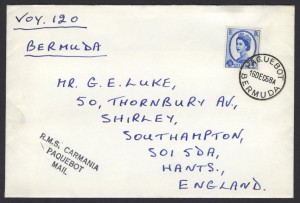 VOY. 120
BERMUDA
PAQUEBOT
BERMUDA
MR. G. E. LUKE,
50, THORNBURY AV,
SHIRLEY,
SOUTHAMPTON,
SO1 5DA,
HANTS,
ENGLAND.
R.M.S. CARMANIA
PAQUEBOT
MAIL